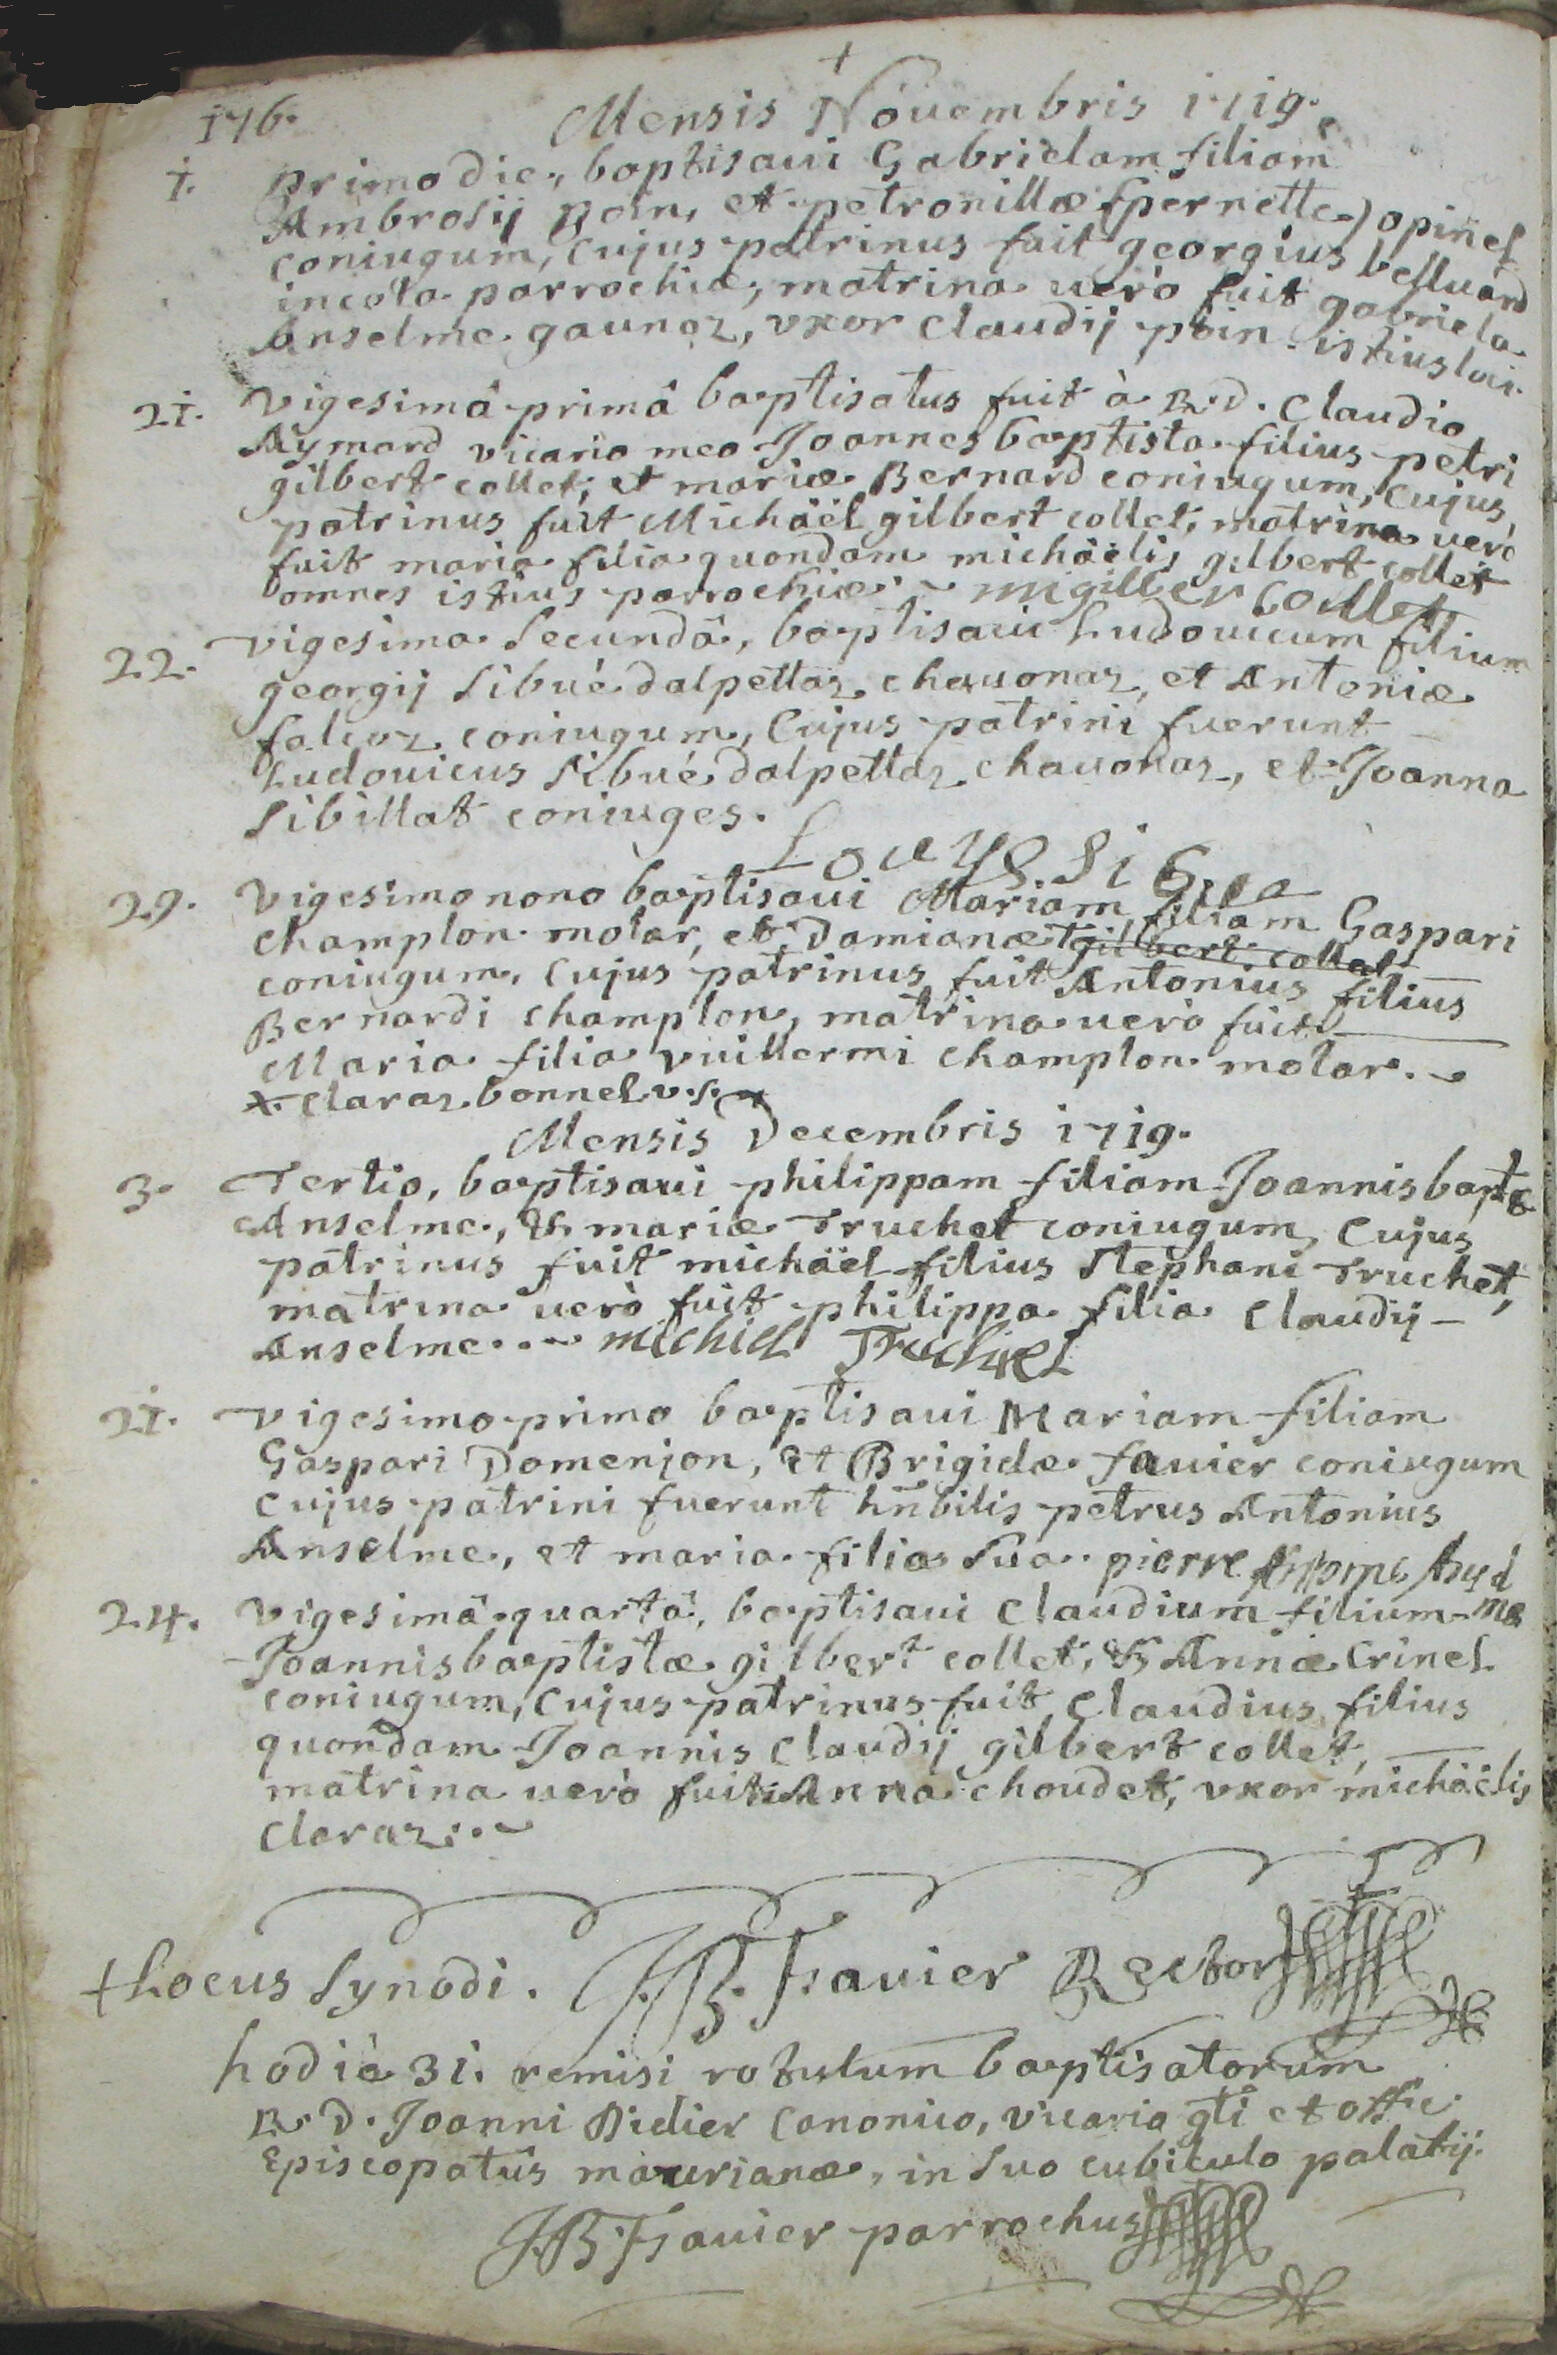 +
176.
Mensis Nouembris 1719.
1. primo die, baptisaui Gabrielam filiam
Ambrosij poin, et petronillæ (pernette) opinel
coniugum, cujus patrinus fuit georgius belluard
incola parrochiæ, matrina uerò fuit gabriela
Anselme gaunoz, vxor claudij poin istius loci.
21. Vigesimâ primâ baptisatus fuit à R.D. claudio
Aÿmard vicario meo Joannes baptista filius petri
gilbert collet, et mariæ Bernard coniugum, cujus
patrinus fuit Michäël gilbert collet, matrina uerò
fuit maria filia quondam michäëlis gilbert collet
omnes istius parrochiæ. m gilber collet
22. Vigesima secundâ, baptisaui Ludouicum filium
georgij sibué dalpettaz chauonaz, et Antoniæ
falcoz coniugum, Cujus patrini fuerunt
Ludouicus sibué dalpettaz chauonaz, et Joanna
sibillat coniuges.
Louys Sibue
29. Vigesimo nono baptisaui Mariam filiam Gaspari
champlon molar, et Damianæ + gilbert collet
coniugum, cujus patrinus fuit Antonius filius
Bernardi champlon, matrina uerò fuit
Maria filia vuillermi champlon molar.
x. claraz bonnel v.s.
Mensis Decembris 1719.
3. Tertio, baptisaui philippam filiam Joannis baptæ
Anselme, & mariæ Truchet coniugum, Cujus
patrinus fuit michäel filius Stephani Truchet,
matrina uerò fuit philippa filia claudij
Anselme. michiel Truchet
21. Vigesimo primo baptisaui Mariam filiam
Gaspari Domenjon, et Brigidæ fauier coniugum
cujus patrini fuerunt hñbilis petrus Antonius
Anselme, et maria filia sua. pierre Antoine Ansel
me
24. Vigesimâ quartâ, baptisaui claudium filium
Joannis baptistæ gilbert collet, & Annæ crinel
coniugum, cujus patrinus fuit claudius filius
quondam Joannis claudij gilbert collet,
matrina uerò fuit Anna choudet, vxor michäëlis
claraz.
+ Locus synodi. JB. Fauier Rector
hodiè 31. remisi rotulum baptisatorum
R.D. Joanni Didier canonico, vicario gñli et offic.
Episcopatûs maurianæ, in suo cubiculo palatij.
JB Fauier parrochus